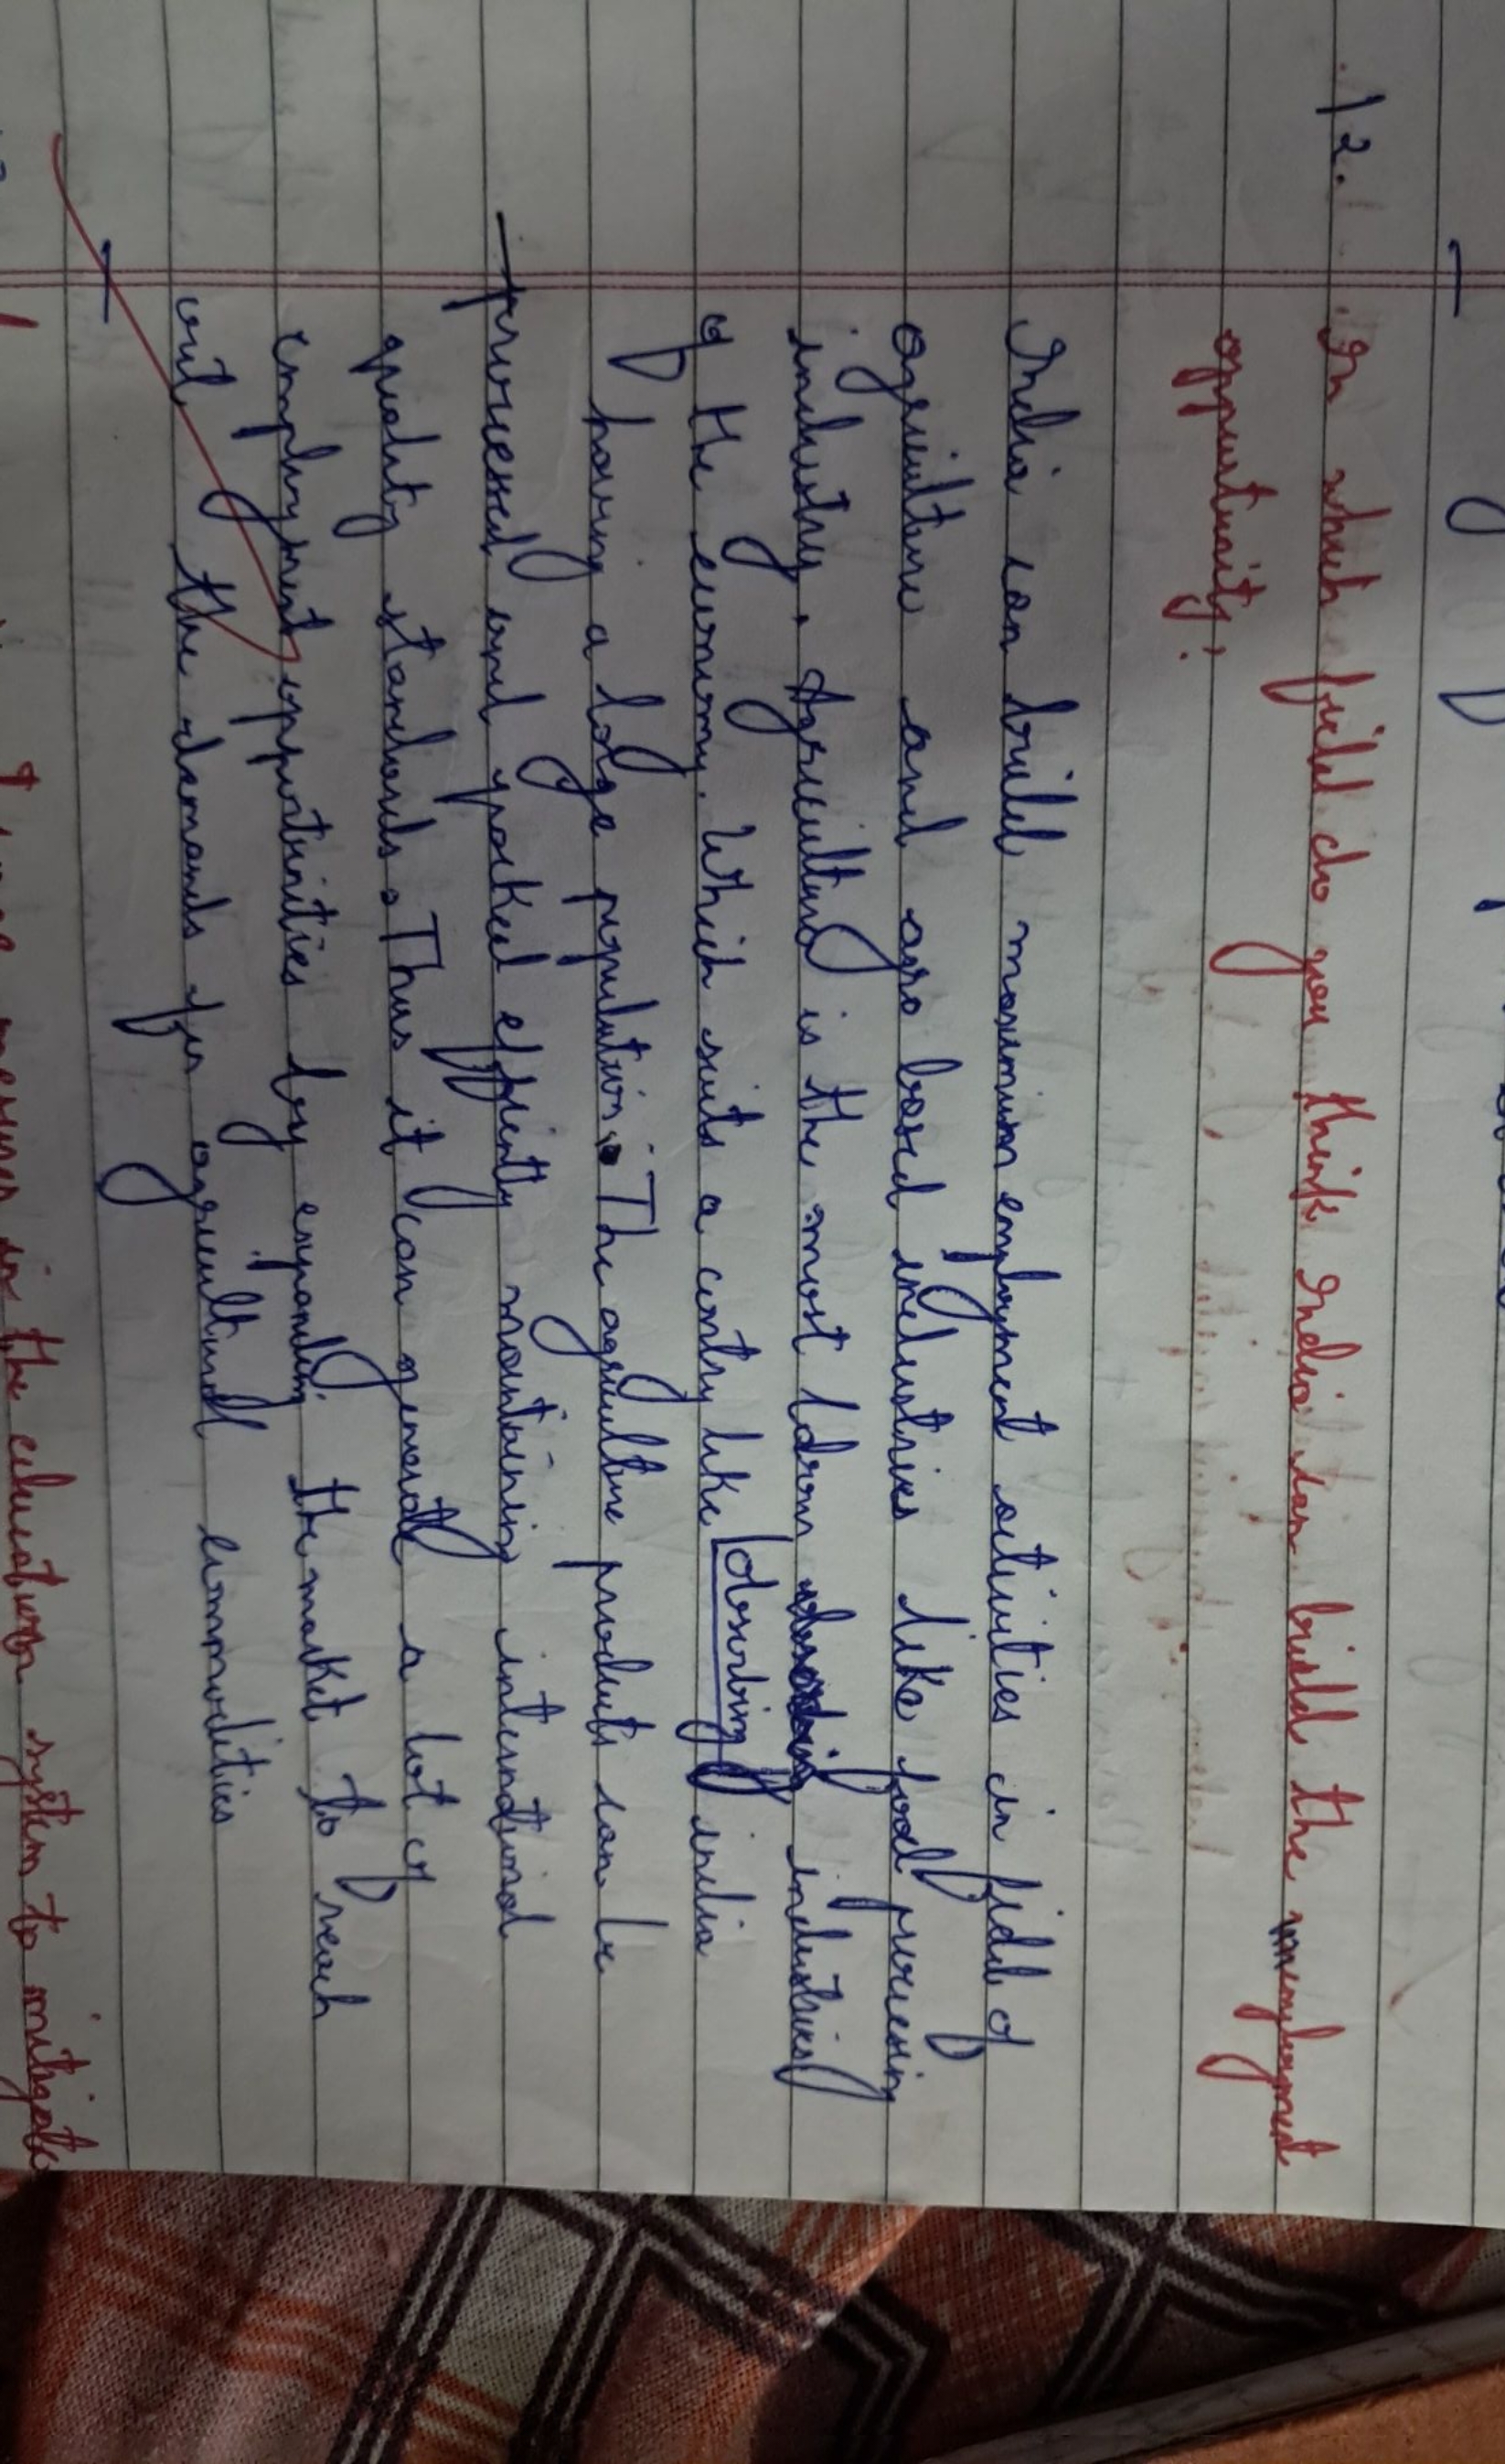 12. In which field do you think India can build the employment
oppurtunity?
India can build maximum employment activities in field of
agriculture and agro based industries like food procesing
industry. Agriculture is the most labour industries
of the economy. Which suits a contry like absorbing india
having a large population. The agriculture products can be
processed and packed effiently maintaining international
quality standards. Thus it can generate a lot of
employment oppportunities by expanding the market to reach
out the demands for agricultural commodities
the education system to mitigate